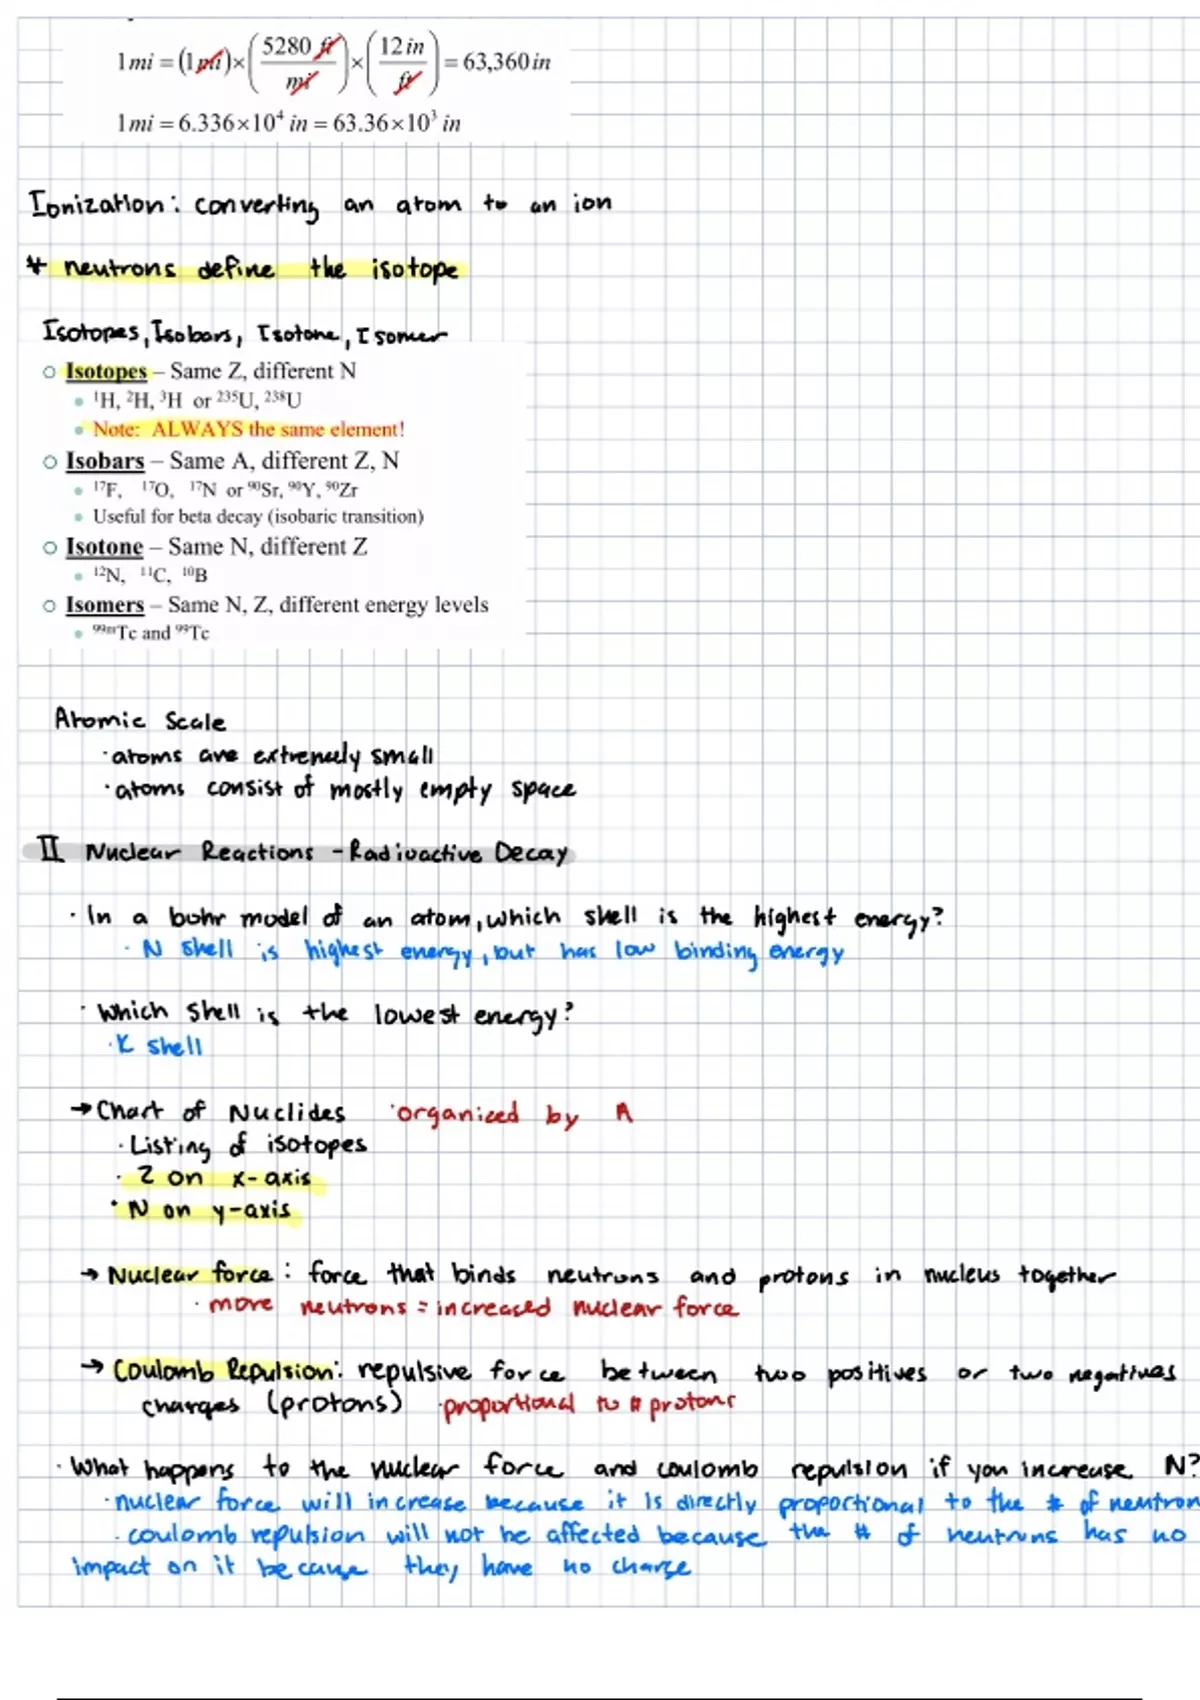 1 mi = (1 mi) × (5280 ft / mi) × (12 in / ft) = 63,360 in
1 mi = 6.336×10⁴ in = 63.36×10³ in
Ionization: converting an atom to an ion
* neutrons define the isotope
Isotopes, Isobars, Isotone, Isomer
○ Isotopes – Same Z, different N
• ¹H, ²H, ³H or ²³⁵U, ²³⁸U
• Note: ALWAYS the same element!
○ Isobars – Same A, different Z, N
• ¹⁷F, ¹⁷O, ¹⁷N or ⁹⁰Sr, ⁹⁰Y, ⁹⁰Zr
• Useful for beta decay (isobaric transition)
○ Isotone – Same N, different Z
• ¹²N, ¹¹C, ¹⁰B
○ Isomers – Same N, Z, different energy levels
• ⁹⁹ᵐTc and ⁹⁹Tc
Atomic Scale
· atoms are extremely small
· atoms consist of mostly empty space
II Nuclear Reactions - Radioactive Decay
· In a bohr model of an atom, which shell is the highest energy?
· N shell is highest energy, but has low binding energy
· Which shell is the lowest energy?
· K shell
→ Chart of Nuclides · organized by A
· Listing of isotopes
· Z on x-axis
· N on y-axis
→ Nuclear force: force that binds neutrons and protons in nucleus together
· more neutrons = increased nuclear force
→ Coulomb Repulsion: repulsive force between two positives or two negatives
charges (protons) · proportional to # protons
· What happens to the nuclear force and coulomb repulsion if you increase N?
· nuclear force will increase because it is directly proportional to the # of neutron
· coulomb repulsion will not be affected because the # of neutrons has no
impact on it because they have no charge